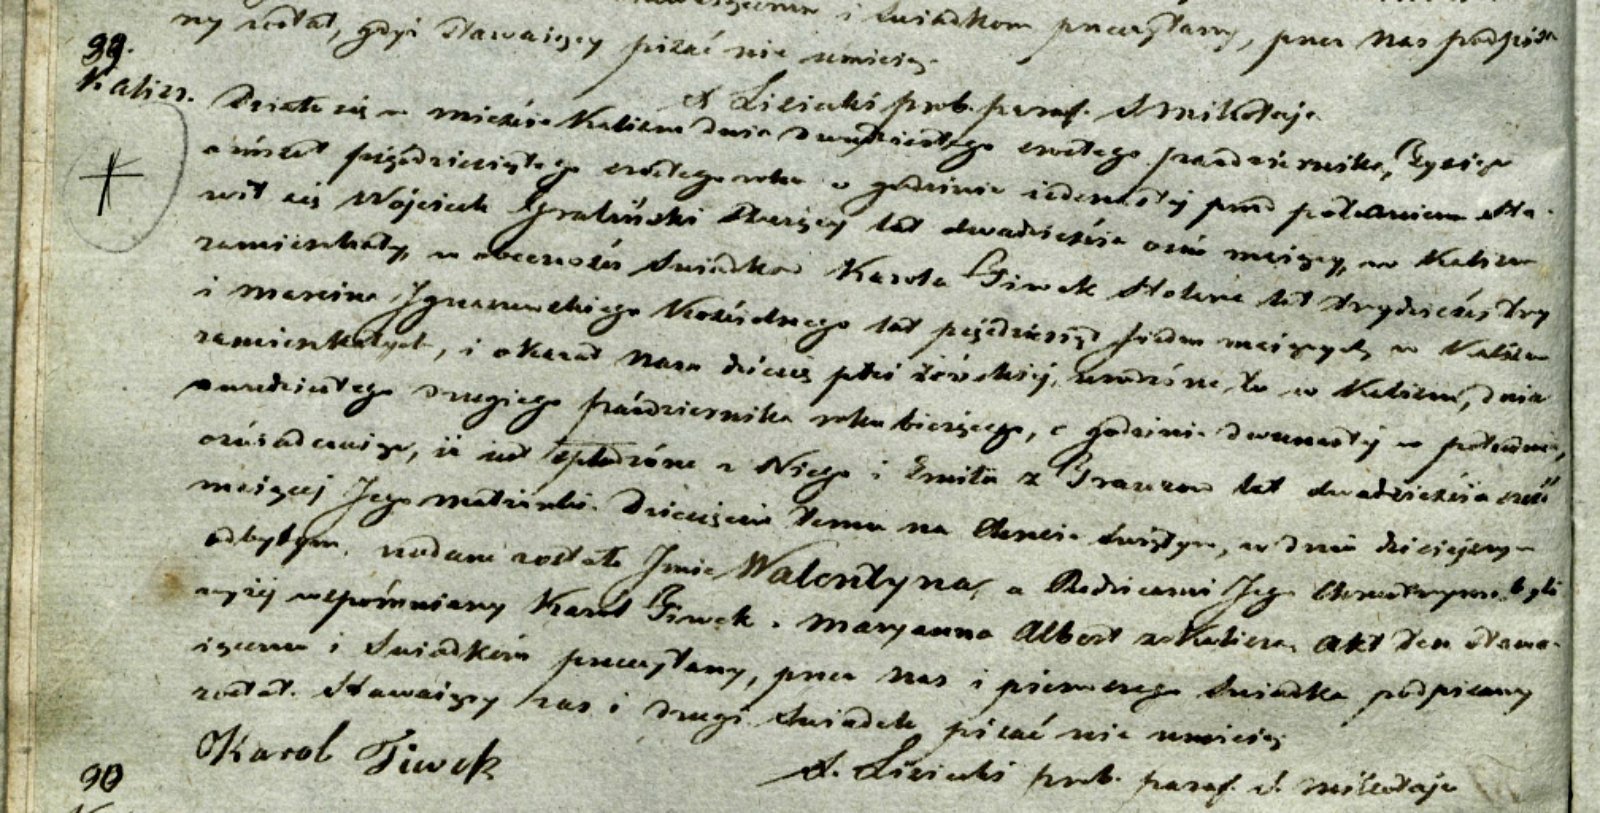 i Świadkom przeczytany, przez Nas podpisa
ny został, gdyż Stawaiący pisać nie umieią.
89.
Kalisz.
A Lisiecki prob. paraf. S Mikołaja
Działo się w mieście Kaliszu dnia dwudziestego szostego października, Tysiąc
ośmset pięćdziesiątego szostego roku o godzinie iedenastej przed południem sta-
wił się Wojciech Graliński Służący lat dwadzieścia ośm maiący, w Kaliszu
zamieszkały, w obecności Świadków Karola Tiwek Stolarza lat trzydzieści trzy
i Marcina Kościelnego lat pięćdziesiąt siedm maiących w Kaliszu
zamieszkałych, i okazał Nam dziecię płci żeńskiej, urodzone tu w Kaliszu, dnia
dwudziestego drugiego października roku bieżącego, o godzinie dwunastej w południe,
oświadczaiąc, iż iest spłodzone z Niego i Emilii z lat dwadzieścia sześć
maiącej Jego małżonki. Dziecięciu temu na Chrzcie świętym, w dniu dzisiejszym
odbytym, nadane zostało Imie Walentyna, a Rodzicami Jego Chrzestnymi byli
wyżej wspomniany Karol Tiwek i Maryanna Albert z Kalisza. Akt ten stawa-
iącemu i Świadkom przeczytany, przez Nas i pierwszego Świadka podpisany
został. Stawaiący zaś i drugi Świadek pisać nie umieią
Karol Tiwek
A. Lisiecki prob. paraf. S. Mikołaja
90